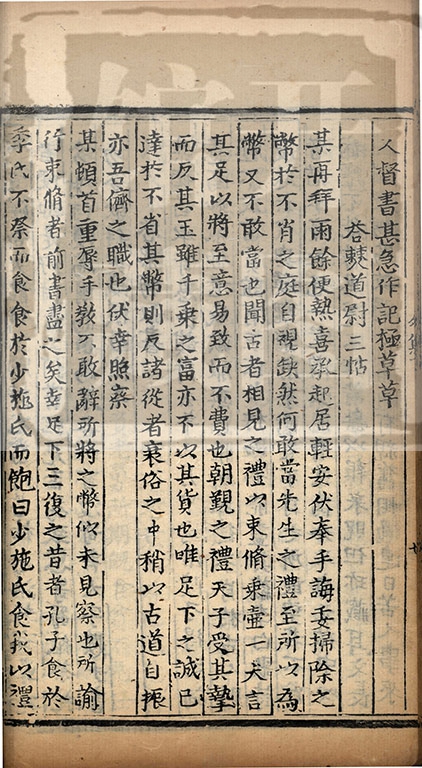 人督書甚急作記極草草
荅㪍道尉三帖
某再拜雨餘便熱喜承起居輕安伏奉手誨委掃除之
幣於不肖之庭自視缺然何敢當先生之禮至所以為
幣又不敢當也聞古者相見之禮以束脩乘壺一犬言
其足以將至意易致而不費也朝覲之禮天子受其摯
而反其玉雖千乘之富亦不以其貨也唯足下之誠已
達於不省其幣則反諸從者衰俗之中稍以古道自振
亦吾儕之職也伏幸照察
某頓首重辱手教不敢辭所將之幣似未見察也所諭
行束脩者前書盡之矣幸足下三復之昔者孔子食於
季氏不祭而食食於少施氏而飽曰少施氏食我以禮